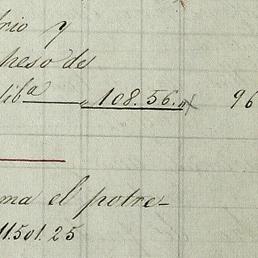 trio y
heso de
diba 108.56. 96
ma el potre-
11.501.25